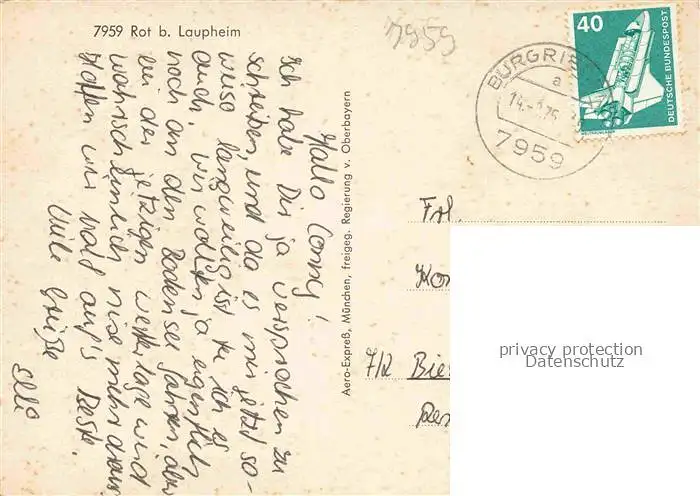 7959 Rot b. Laupheim
7959
Hallo Conny!
Ich habe Dir ja versprochen zu
schreiben, und da es mir jetzt so-
wieso langweilig ist tu ich es
auch. Wir wollten ja eigentlich
noch an den Bodensee fahren, aber
bei der jetzigen Wetterlage wird
wahrscheinlich nix mehr draus.
Hoffen wir halt auf's Beste.
Viele Grüße
Elli
Aero-Expreß, München, freigeg. Regierung v. Oberbayern
BURGRIE
a
14.
7959
40
DEUTSCHE BUNDESPOST
WELTRAUMLABOR
Frl.
Kon
Bie
privacy protection
Datenschutz